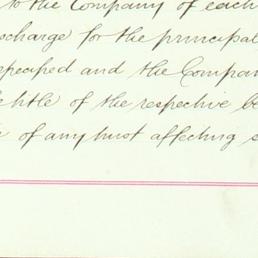 to the Company of each
discharge for the principal
specified and the Compan
title of the respective be
of any trust affecting s